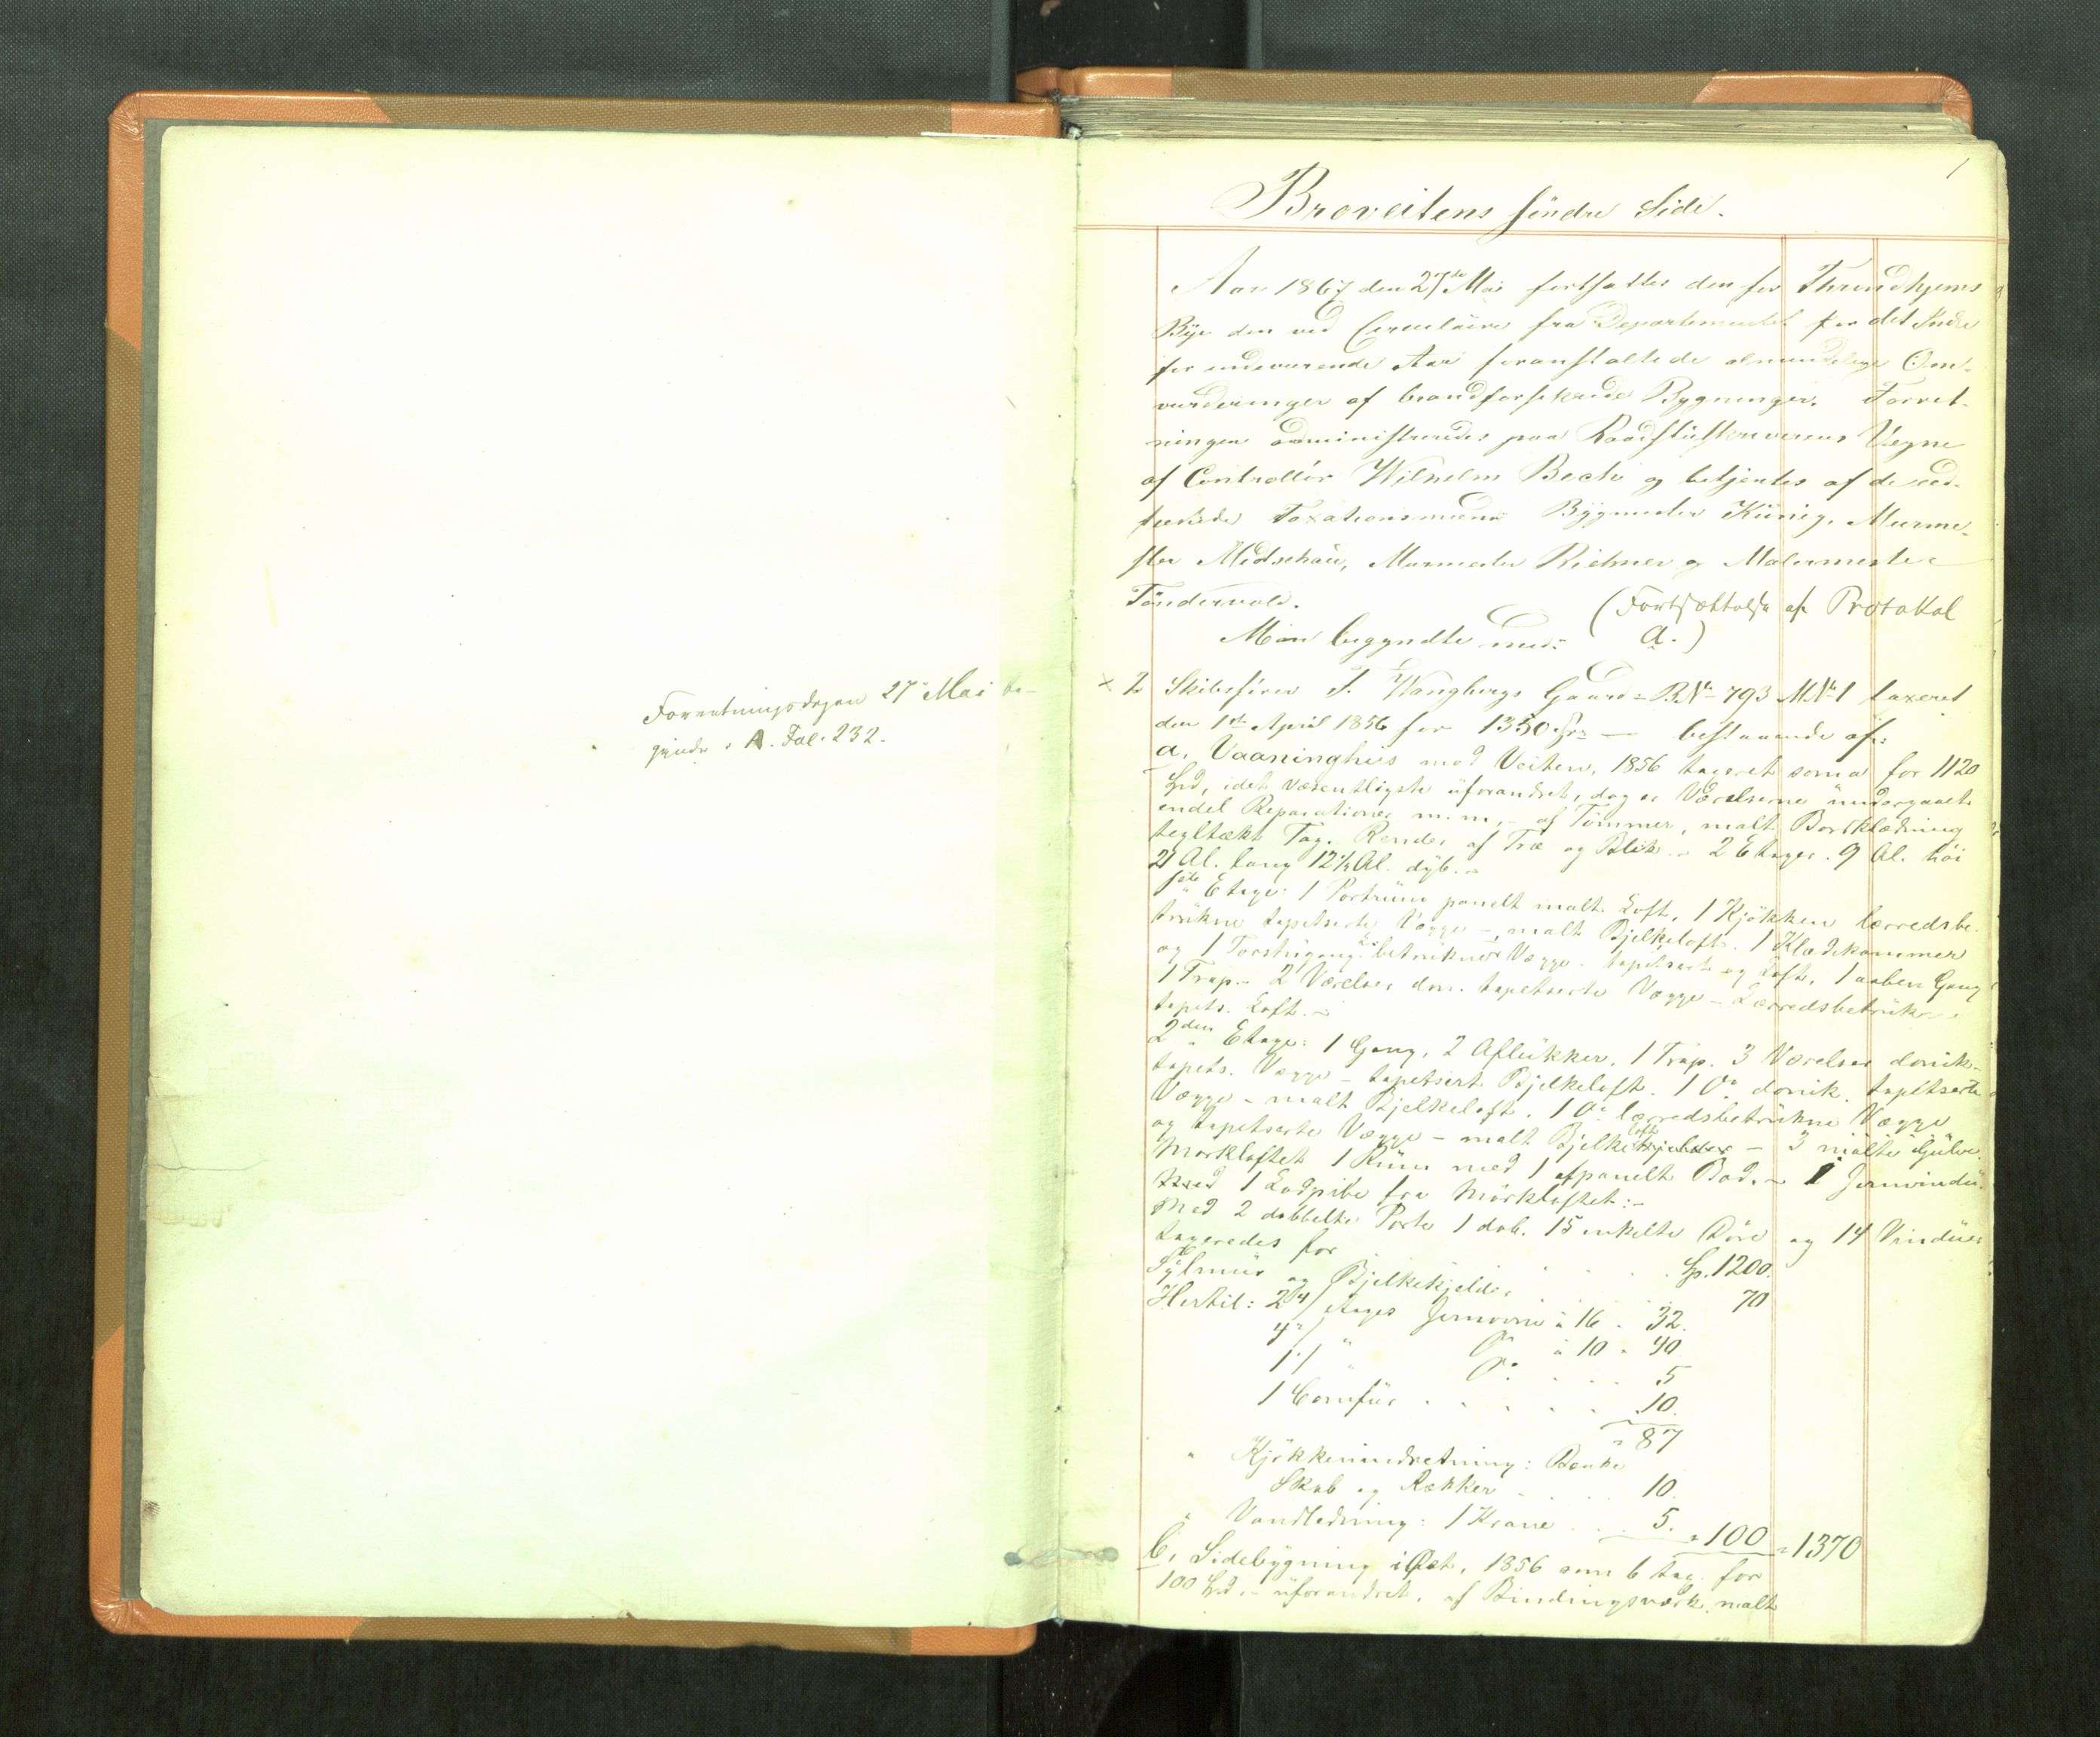 Forretningsdagen 27 Mai be-
gynder i A. Fol. 232.
1
Broveitens søndre Side.
Aar 1867 den 27de Mai fortsattes den for Throndhjems
Bye den ved Circulaire fra Departementet for det Indre
for indeværende Aar foranstaltede almindelige Om-
vurderinger af brandforsikrede Bygninger. Forret-
ningen administreredes paa Raadstuskriverens Vegne
af Controllør Wilhelm Beck og betjentes af de eed-
fæstede Taxationsmænd Bygmester König, Murme-
ster Midschau, Murmester Richner og Malermester
Tøndervold.
(Fortsættelse af Protokol
Man begyndte med: a.)
× 2 Skibsfører J. Wangbergs Gaard = BN 793 MN 1 taxeret
den 1ste April 1856 for 1350 Spd — bestaaende af:
a, Vaaningshus mod Veiten, 1856 taxeret som a for 1120
Spd, idet væsentligste uforandret, dog er Værelserne undergaaet
endel Reparationer m.m, - af Tømmer, malt Bordklædning
tegltækt Tag. Render af Træ og Blik. - 2 Etager. 9 Al. høi
21 Al. lang 12½ Al. dyb. -
1ste Etage: 1 Portrum panelt malt Loft, 1 Kjøkken lærredsbe-
trukne tapetserte Vægge -, malt Bjelkeloft. 1 Klædekammer
og 1 Forstugang betrukne Vægge. tapetsert og Loft, 1 aaben Gang
1 Trap. - 2 Værelser don. tapetserte Vægge - Lærredsbetrukne
tapets. Loft. -
2den Etage: 1 Gang, 2 Aflukker, 1 Trap. 3 Værelser donik.
tapets. Vægge - tapetsert Bjelkeloft. 1 Do donik. tapetserte
Vægge - malt Bjelkeloft. 1 Do lærredsbetrukne Vægge
og tapetserte Vægge - malt Bjelkeloft - 3 malte Gulve.
Mørkloftet 1 Rum med 1 afpanelt Bod. - 1 Jernvindu.
med 1 Lodpibe fra Mørkloftet: -
Med 2 dobbelte Porte 1 dob. 15 enkelte Døre og 14 Vinduer
taxeredes for . . . Sp. 1200.
Sylmur og Bjelkekjelder . . . 70
Hertil: 2 Etages Jernovne à 16 . 32.
4 " Do à 10 " 40
1 " Do . . . 5
1 Comfur . . . . . 10.
" 87
" Kjøkkenindretning: Bænke
Skab og Rækker . . . 10.
" Vandledning: 1 Krane . . . 5. " 100 = 1370
b, Sidebygning i Øst, 1856 som b tax. for
100 Spd. - uforandret, af Bindingsværk, malt